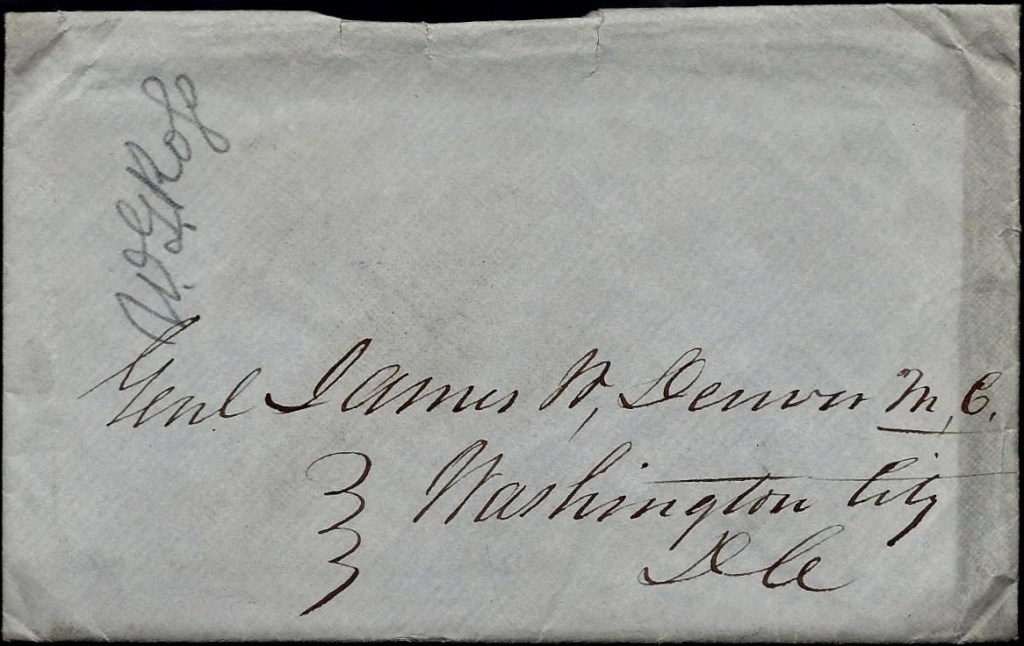 W. G. Ross
Genl James W, Denver M, C.
Washington City
D C